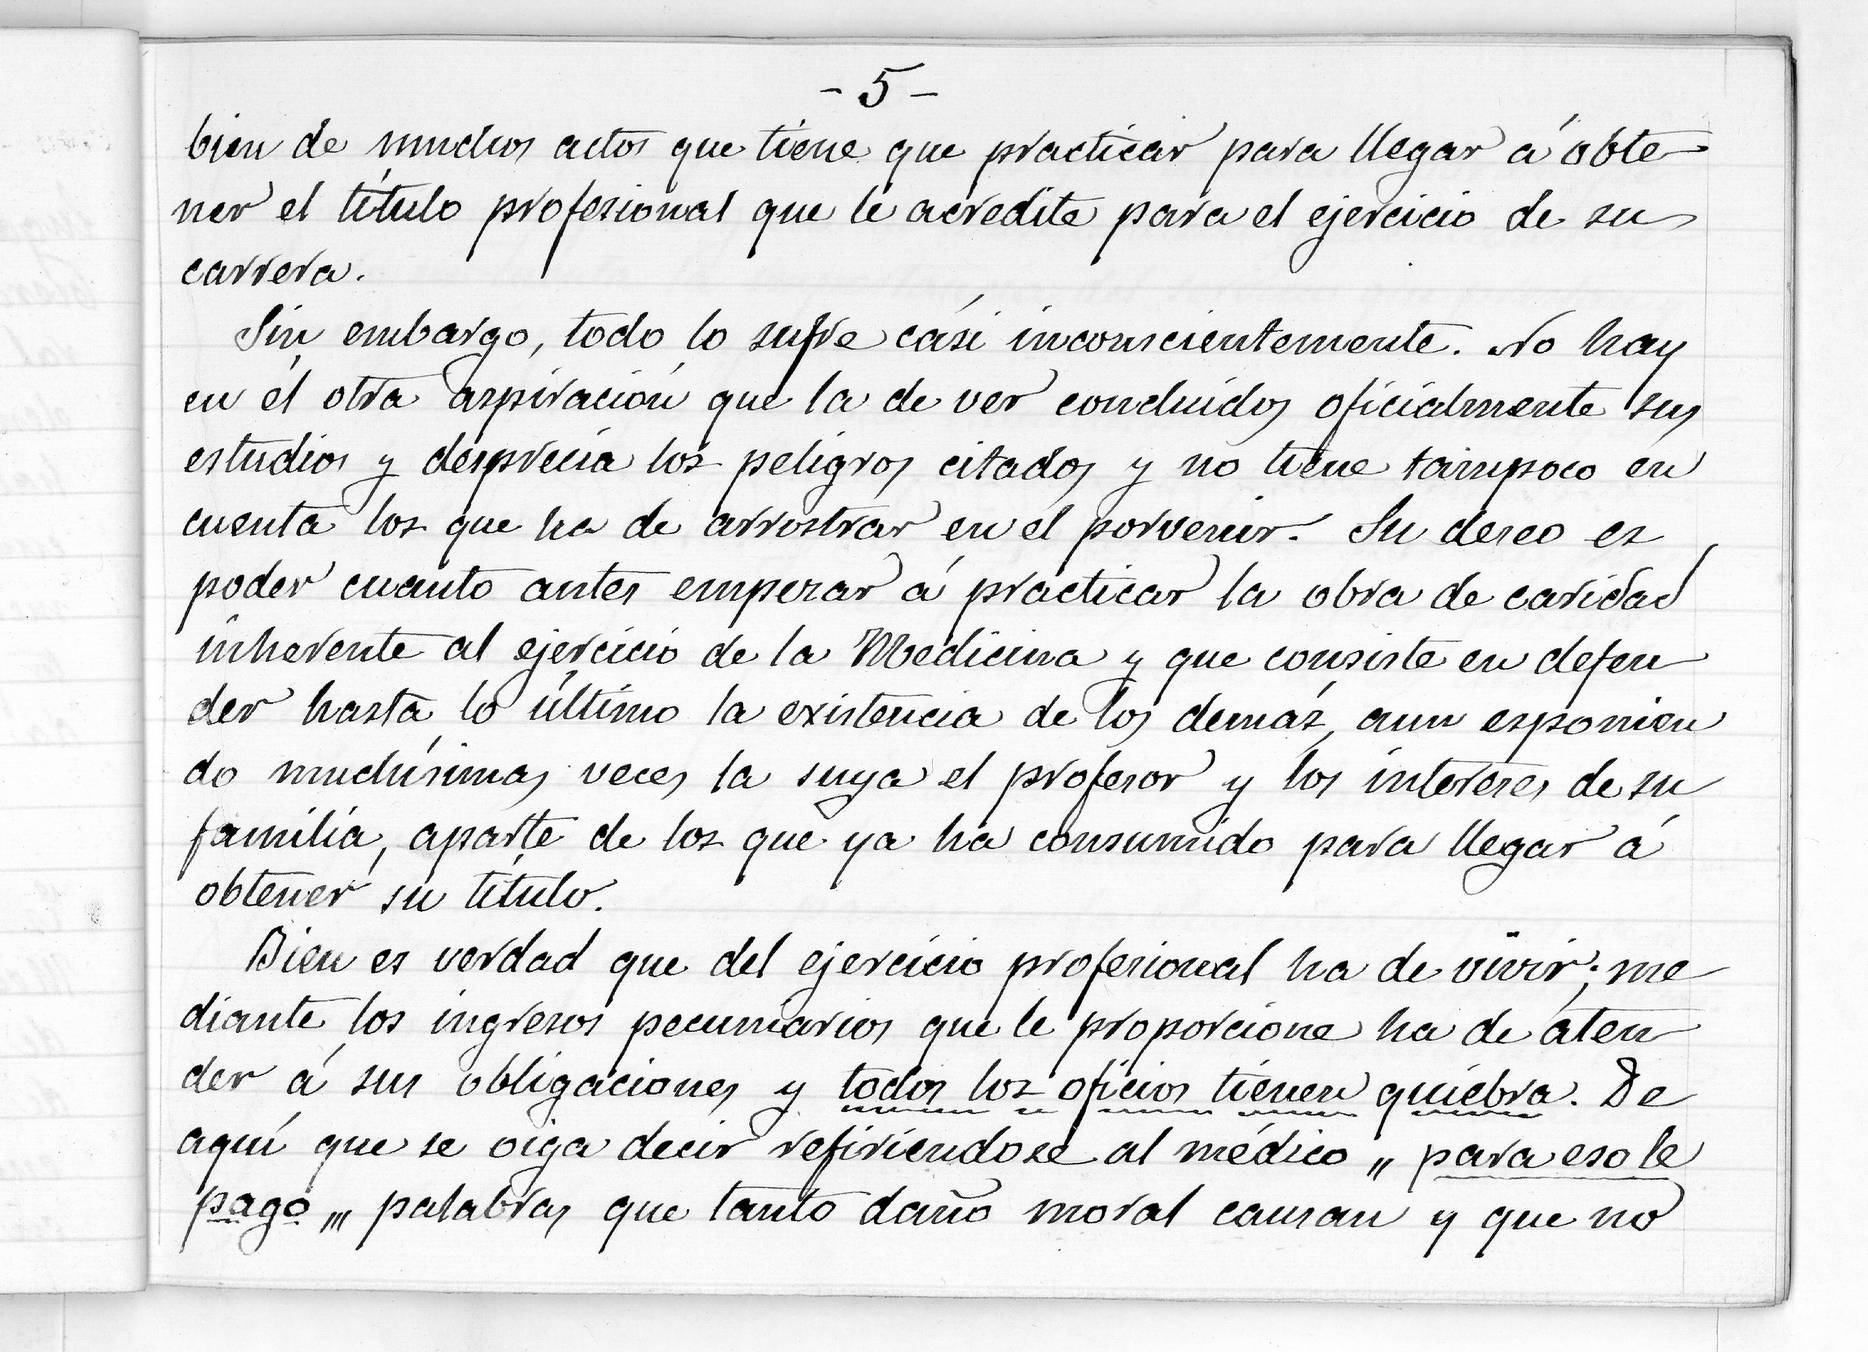 - 5 -
bien de muchos actos que tiene que practicar para llegar á obte
ner el título profesional que le acredite para el ejercicio de su
carrera.
Sin embargo, todo lo sufre cási inconscientemente. No hay
en él otra aspiración que la de ver concluidos oficialmente sus
estudios y desprecia los peligros citados y no tiene tampoco en
cuenta los que ha de arrostrar en el porvenir. Su deseo es
poder cuanto antes empezar á practicar la obra de caridad
inherente al ejercicio de la Medicina y que consiste en defen
der hasta lo último la existencia de los demás, aun esponien
do muchísimas veces la suya el profesor y los intereses de su
familia, aparte de los que ya ha consumido para llegar á
obtener su título.
Bien es verdad que del ejercicio profesional ha de vivir; me
diante los ingresos pecuniarios que le proporcione ha de aten
der á sus obligaciones y todos los oficios tienen quiebra. De
aquí que se oiga decir refiriéndose al médico „ para eso le
pago „, palabras que tanto daño moral causan y que no